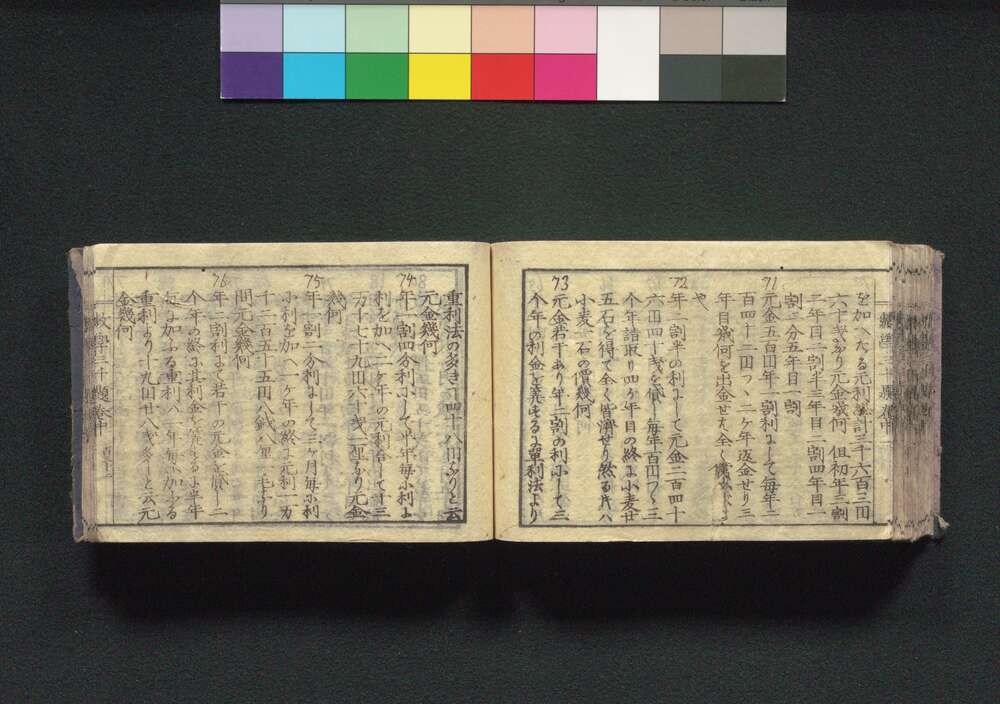 を加へたる元利総計三千六百三円
六十戔なり元金幾何但初年三割
二年目二割半三年目二割四年目一
割二分五年目一割
71
元金五百円年一割利にして毎年二
百四十二円つゝ二ケ年返金せり三
年目幾何を出金せば全く償
や
72
年二割半の利にして元金二百四十
六円四十戔を償し毎年百円つゝ三
个年請取り四ケ年目の終に小麦廿
五石を得て全く皆済せり然る片八
小麦一石の價幾何
73
元金若干あり年二割の利にして三
个年の利金を算するに單利法より
重利法の多き了四十八円なりと云
元金幾何
74
年一割四分利にして半年毎に利に
利を加へ二ケ年の元利合して十三
万千七十九円六十戔一厘なり元金
幾何
75
年一割二分利にして三ケ月毎に利
に利を加へ一ケ年の終に元利一万
千二百五十五円八銭八厘一毛なり
問元金幾何
76
年二割利にて若干の元金を借し二
个年の終に其利金を算するに半年
毎に加ふる重利八一年毎に加ふる
重利より九円廿八戔多しと云元
金幾何
数學三千題卷中